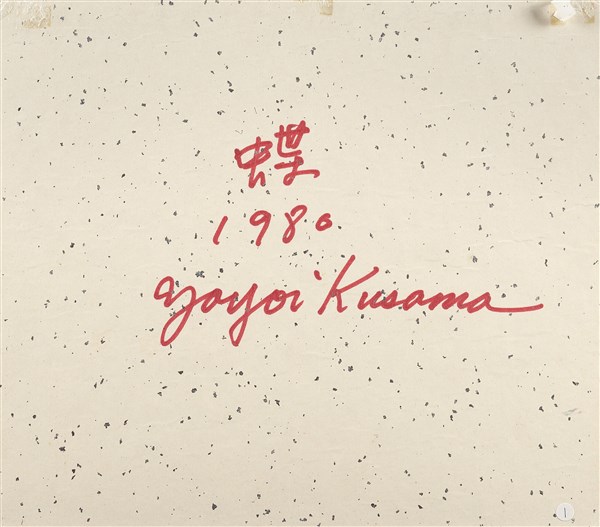 蝶
1980
Yayoi Kusama
1